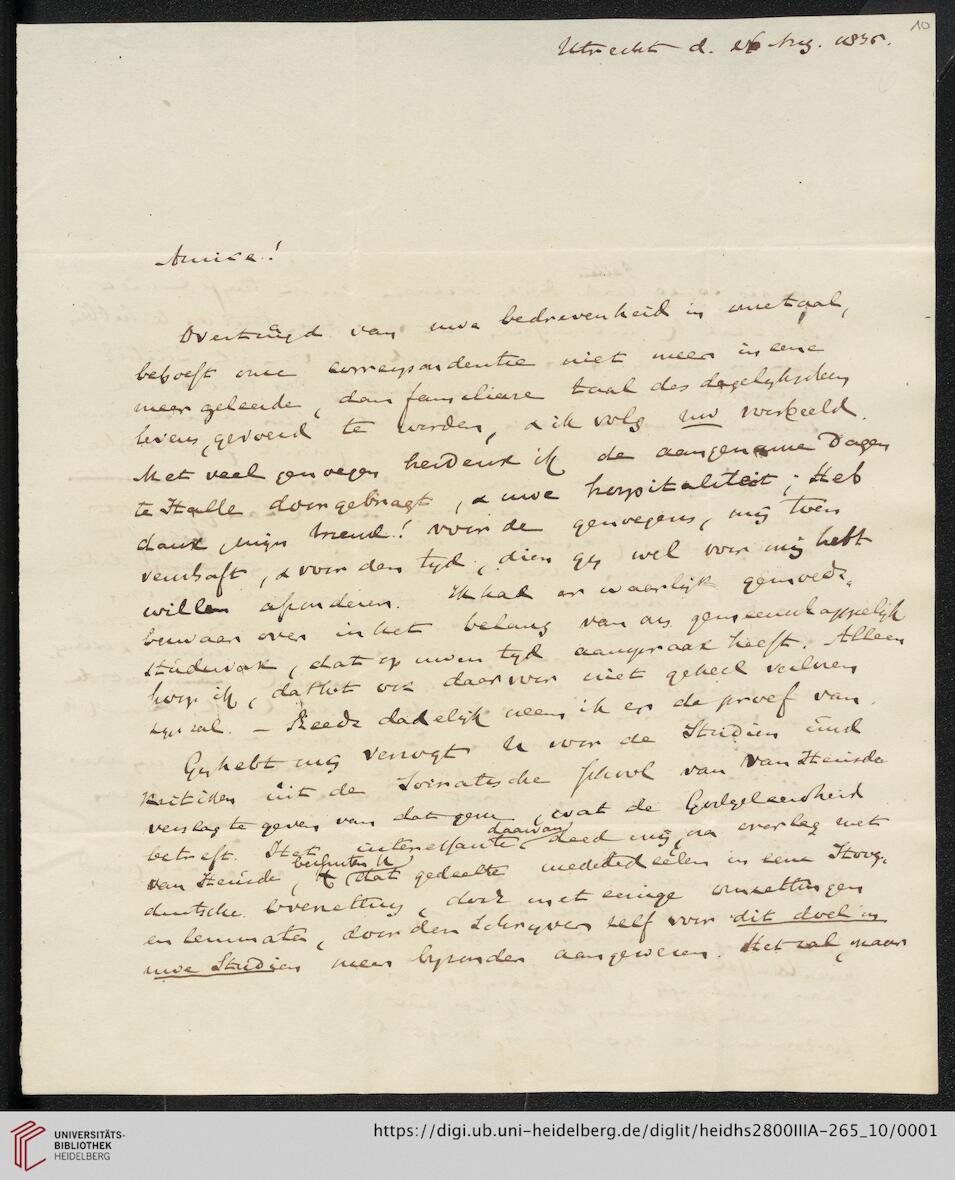 10
Utrecht d. 26 Aug. 1835.
Amice!
Overtuigd van uwe bedrevenheid in onze taal,
behoeft onze correspondentie niet meer in eene
meer geleerde, dan familiare taal des dagelykschen
levens, gevoerd te worden, & ik volg uw voorbeeld.
Met veel genoegen herdenk ik de aangename dagen
te Halle doorgebragt, & uwe hospitaliteit; Heb
dank, mijn vriend! voor de genoegens, mij toen
verschaft, & voor den tyd, dien gy wel voor mij hebt
willen afzonderen. Ik had er waarlijk gemoeds-
bezwaar over in het belang van ons gemeenschappelijk
studievak, dat op uwen tyd aanspraak heeft. Alleen
hoop ik, dat het ook daarvoor niet geheel verloren
zyn zal. — Reeds dadelijk neem ik er de proef van.
Gy hebt mij verzogt U voor de Studien und
Kritiken uit de Socratische School van Van Heusde
verslag te geven van dat gene, wat de Godgeleerdheid
betreft. Het interessantste daarvan deed mij, na overleg met
van Heusde, besluiten U dat gedeelte mededeelen in eene Hoog-
duitsche overzetting, doch met eenige omzettingen
en lemmata, door den Schryver zelf voor dit doel in
uwe Studien meer byzonder aangewezen. Het zal, naar
UNIVERSITÄTS-
BIBLIOTHEK
HEIDELBERG
https://digi.ub.uni-heidelberg.de/diglit/heidhs2800IIIA-265_10/0001